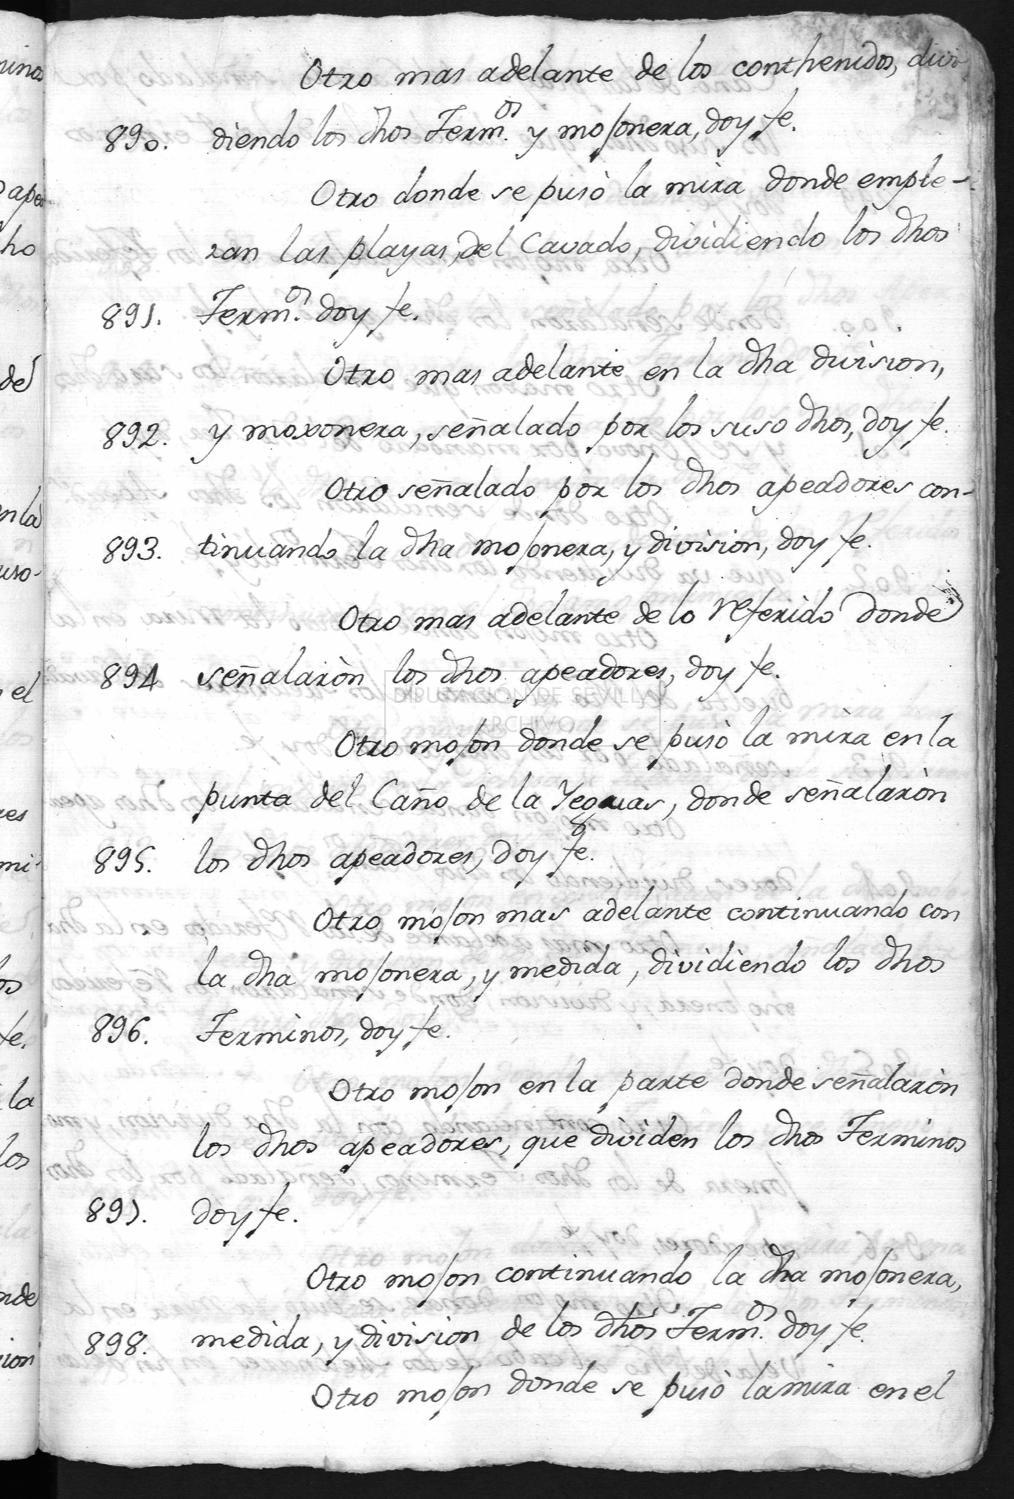 Otro mas adelante de los conthenidos, divi
890. diendo los dhos Term.os y mojonera, doy fe.
Otro donde se pusò la mira donde empie-
zan las playas, del Cavado, dividiendo los dhos
891. Term.os doy fe.
Otro mas adelante en la dha division,
892. y moxonera, señalado por los suso dhos, doy fe.
Otro señalado por los dhos apeadores con-
893. tinuando la dha mojonera, y division, doy fe.
Otro mas adelante de lo referido donde
894 señalaròn los dhos apeadores, doy fe.
Otro mojon donde se pusò la mira en la
punta del Caño de la Yeguas, donde señalaròn
895. los dhos apeadores, doy fe.
Otro mojon mas adelante continuando con
la dha mojonera, y medida, dividiendo los dhos
896. Terminos, doy fe.
Otro mojon en la parte donde señalaròn
los dhos apeadores, que dividen los dhos Terminos
897. doy fe.
Otro mojon continuando la dha mojonera,
898. medida, y division de los dhos Term.os doy fe.
Otro mojon donde se pusò la mira en el
DIPUTACION DE SEVILLA
ARCHIVO